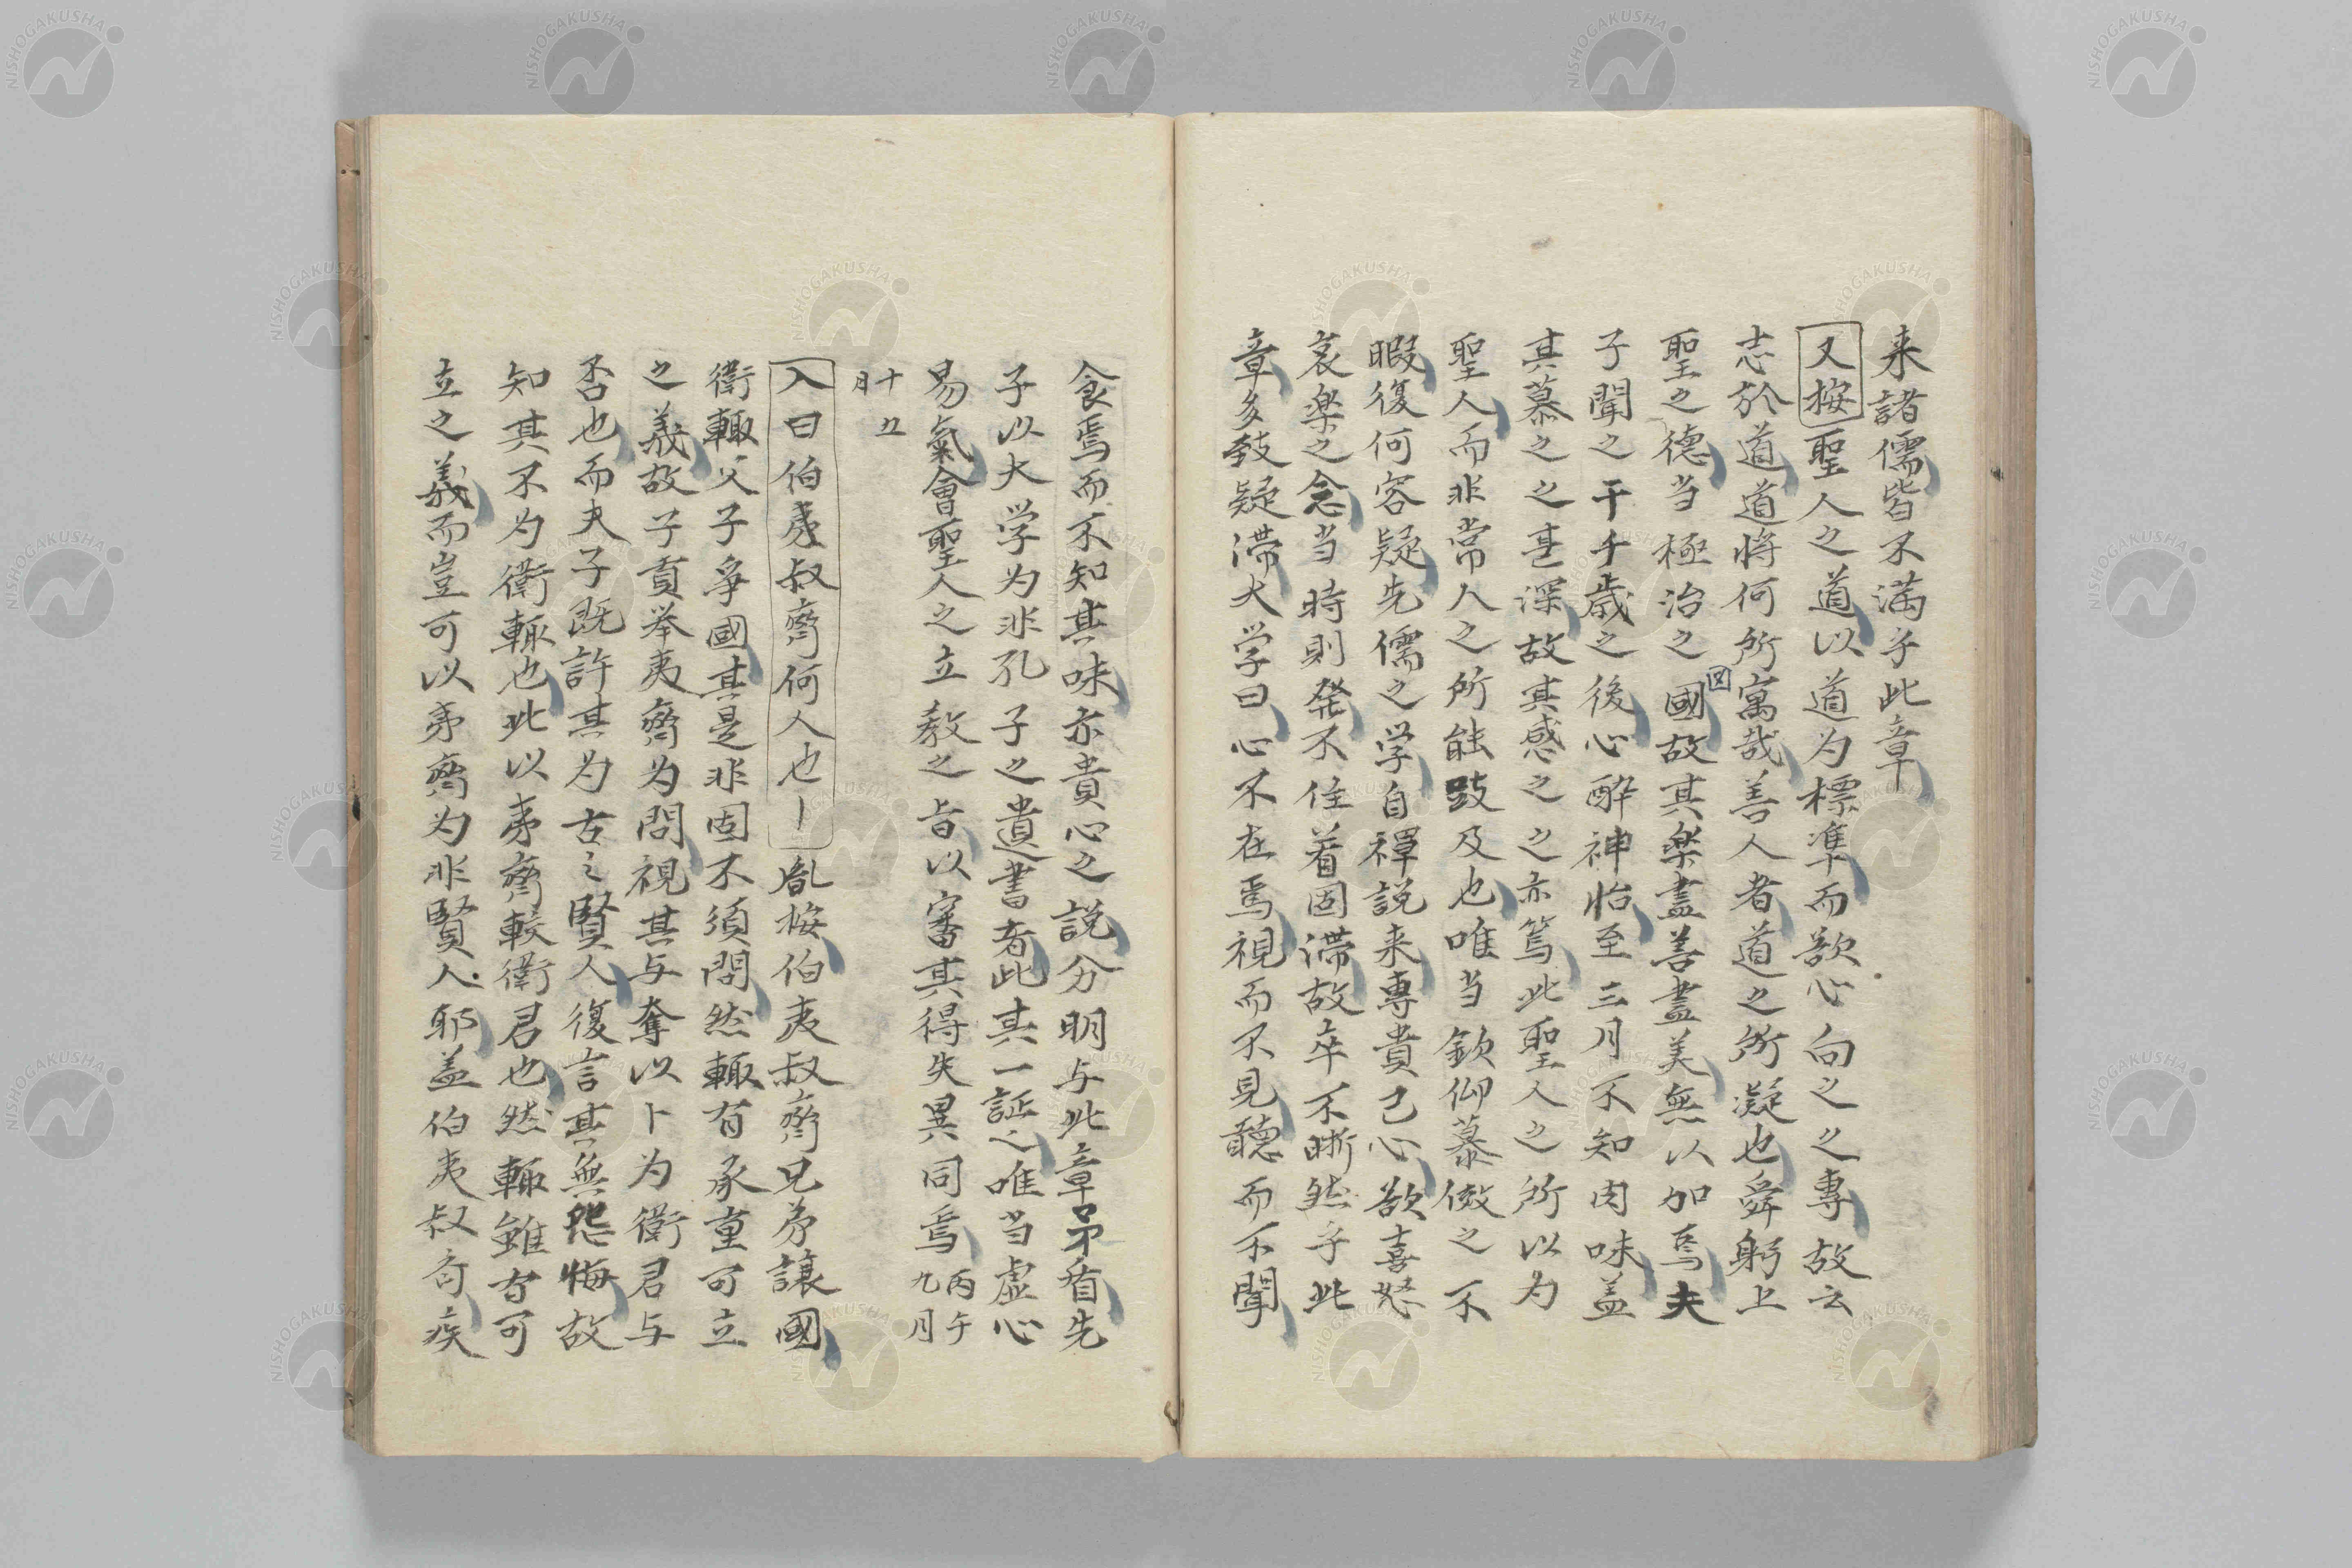 来諸儒皆不満乎此章
又按聖人之道以道为標準而欲心向之之專故云
志於道道将何所寓哉善人者道之所凝也舜躬上
聖之德当極治之國故其楽盡善盡美無以加焉夫
子聞之于千歳之後心酔神怡至三月不知肉味盖
其慕之之甚深故其感之之亦篤此聖人之所以为
聖人而非常人之所能跂及也唯当欽仰慕傚之不
暇復何容疑先儒之学自禅説来專貴己心欲喜怒
哀楽之念当時則発不住着固滞故卒不晣然乎此
章多致疑滞大学曰心不在焉視而不見聴而不聞
食焉而不知其味亦貴心之説分明与此章矛盾先
子以大学为非孔子之遺書者此其一証也唯当虚心
易氣會聖人之立教之旨以審其得失異同焉 丙午九月
十五月
入曰伯夷叔齊何人也 胤按伯夷叔齊兄弟譲國
衛輙父子爭國其是非固不須問然輙有承重可立
之義故子貢挙夷齊为問視其与奪以卜为衛君与
否也而夫子既許其为古之賢人復言其無怨悔故
知其不为衛輙也此以夷齊較衛君也然輙雖有可
立之義而豈可以夷齊为非賢人耶盖伯夷叔斉疾